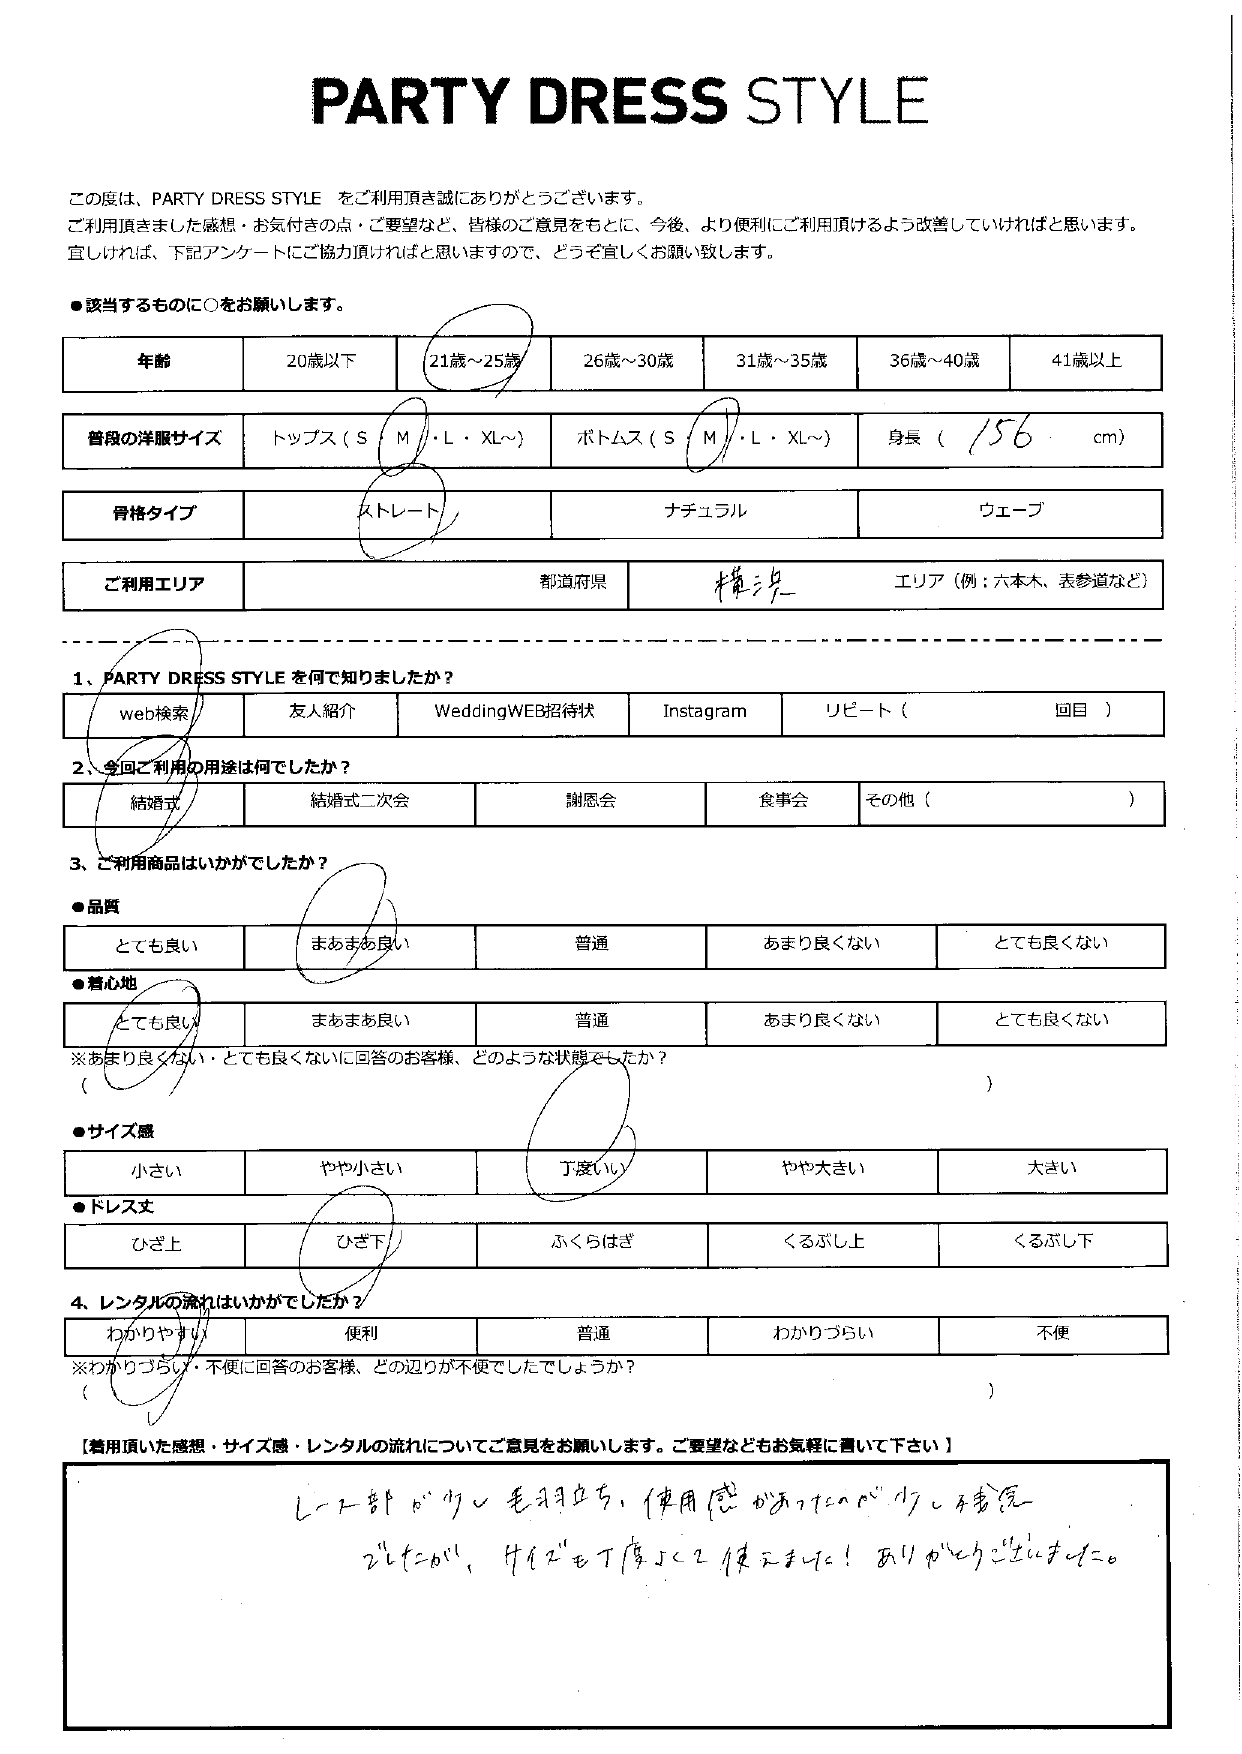 PARTY DRESS STYLE
この度は、PARTY DRESS STYLE をご利用頂き誠にありがとうございます。
ご利用頂きました感想・お気付きの点・ご要望など、皆様のご意見をもとに、今後、より便利にご利用頂けるよう改善していければと思います。
宜しければ、下記アンケートにご協力頂ければと思いますので、どうぞ宜しくお願い致します。
●該当するものに○をお願いします。
年齢 20歳以下 21歳～25歳 26歳～30歳 31歳～35歳 36歳～40歳 41歳以上
普段の洋服サイズ トップス ( S ・ M ・ L ・ XL～) ボトムス ( S ・ M ・ L ・ XL～) 身長 ( 156 cm)
骨格タイプ ストレート ナチュラル ウェーブ
ご利用エリア 都道府県 横浜 エリア（例：六本木、表参道など）
1、PARTY DRESS STYLE を何で知りましたか？
web検索 友人紹介 WeddingWEB招待状 Instagram リピート（ 回目 ）
2、今回ご利用の用途は何でしたか？
結婚式 結婚式二次会 謝恩会 食事会 その他（ ）
3、ご利用商品はいかがでしたか？
●品質
とても良い まあまあ良い 普通 あまり良くない とても良くない
●着心地
とても良い まあまあ良い 普通 あまり良くない とても良くない
※あまり良くない・とても良くないに回答のお客様、どのような状態でしたか？
( )
●サイズ感
小さい やや小さい 丁度いい やや大きい 大きい
●ドレス丈
ひざ上 ひざ下 ふくらはぎ くるぶし上 くるぶし下
4、レンタルの流れはいかがでしたか？
わかりやすい 便利 普通 わかりづらい 不便
※わかりづらい・不便に回答のお客様、どの辺りが不便でしたでしょうか？
( )
【着用頂いた感想・サイズ感・レンタルの流れについてご意見をお願いします。ご要望などもお気軽に書いて下さい 】
レース部が少し毛羽立ち、使用感があったのが少し残念
でしたが、サイズも丁度よくて使えました！ありがとうございました。